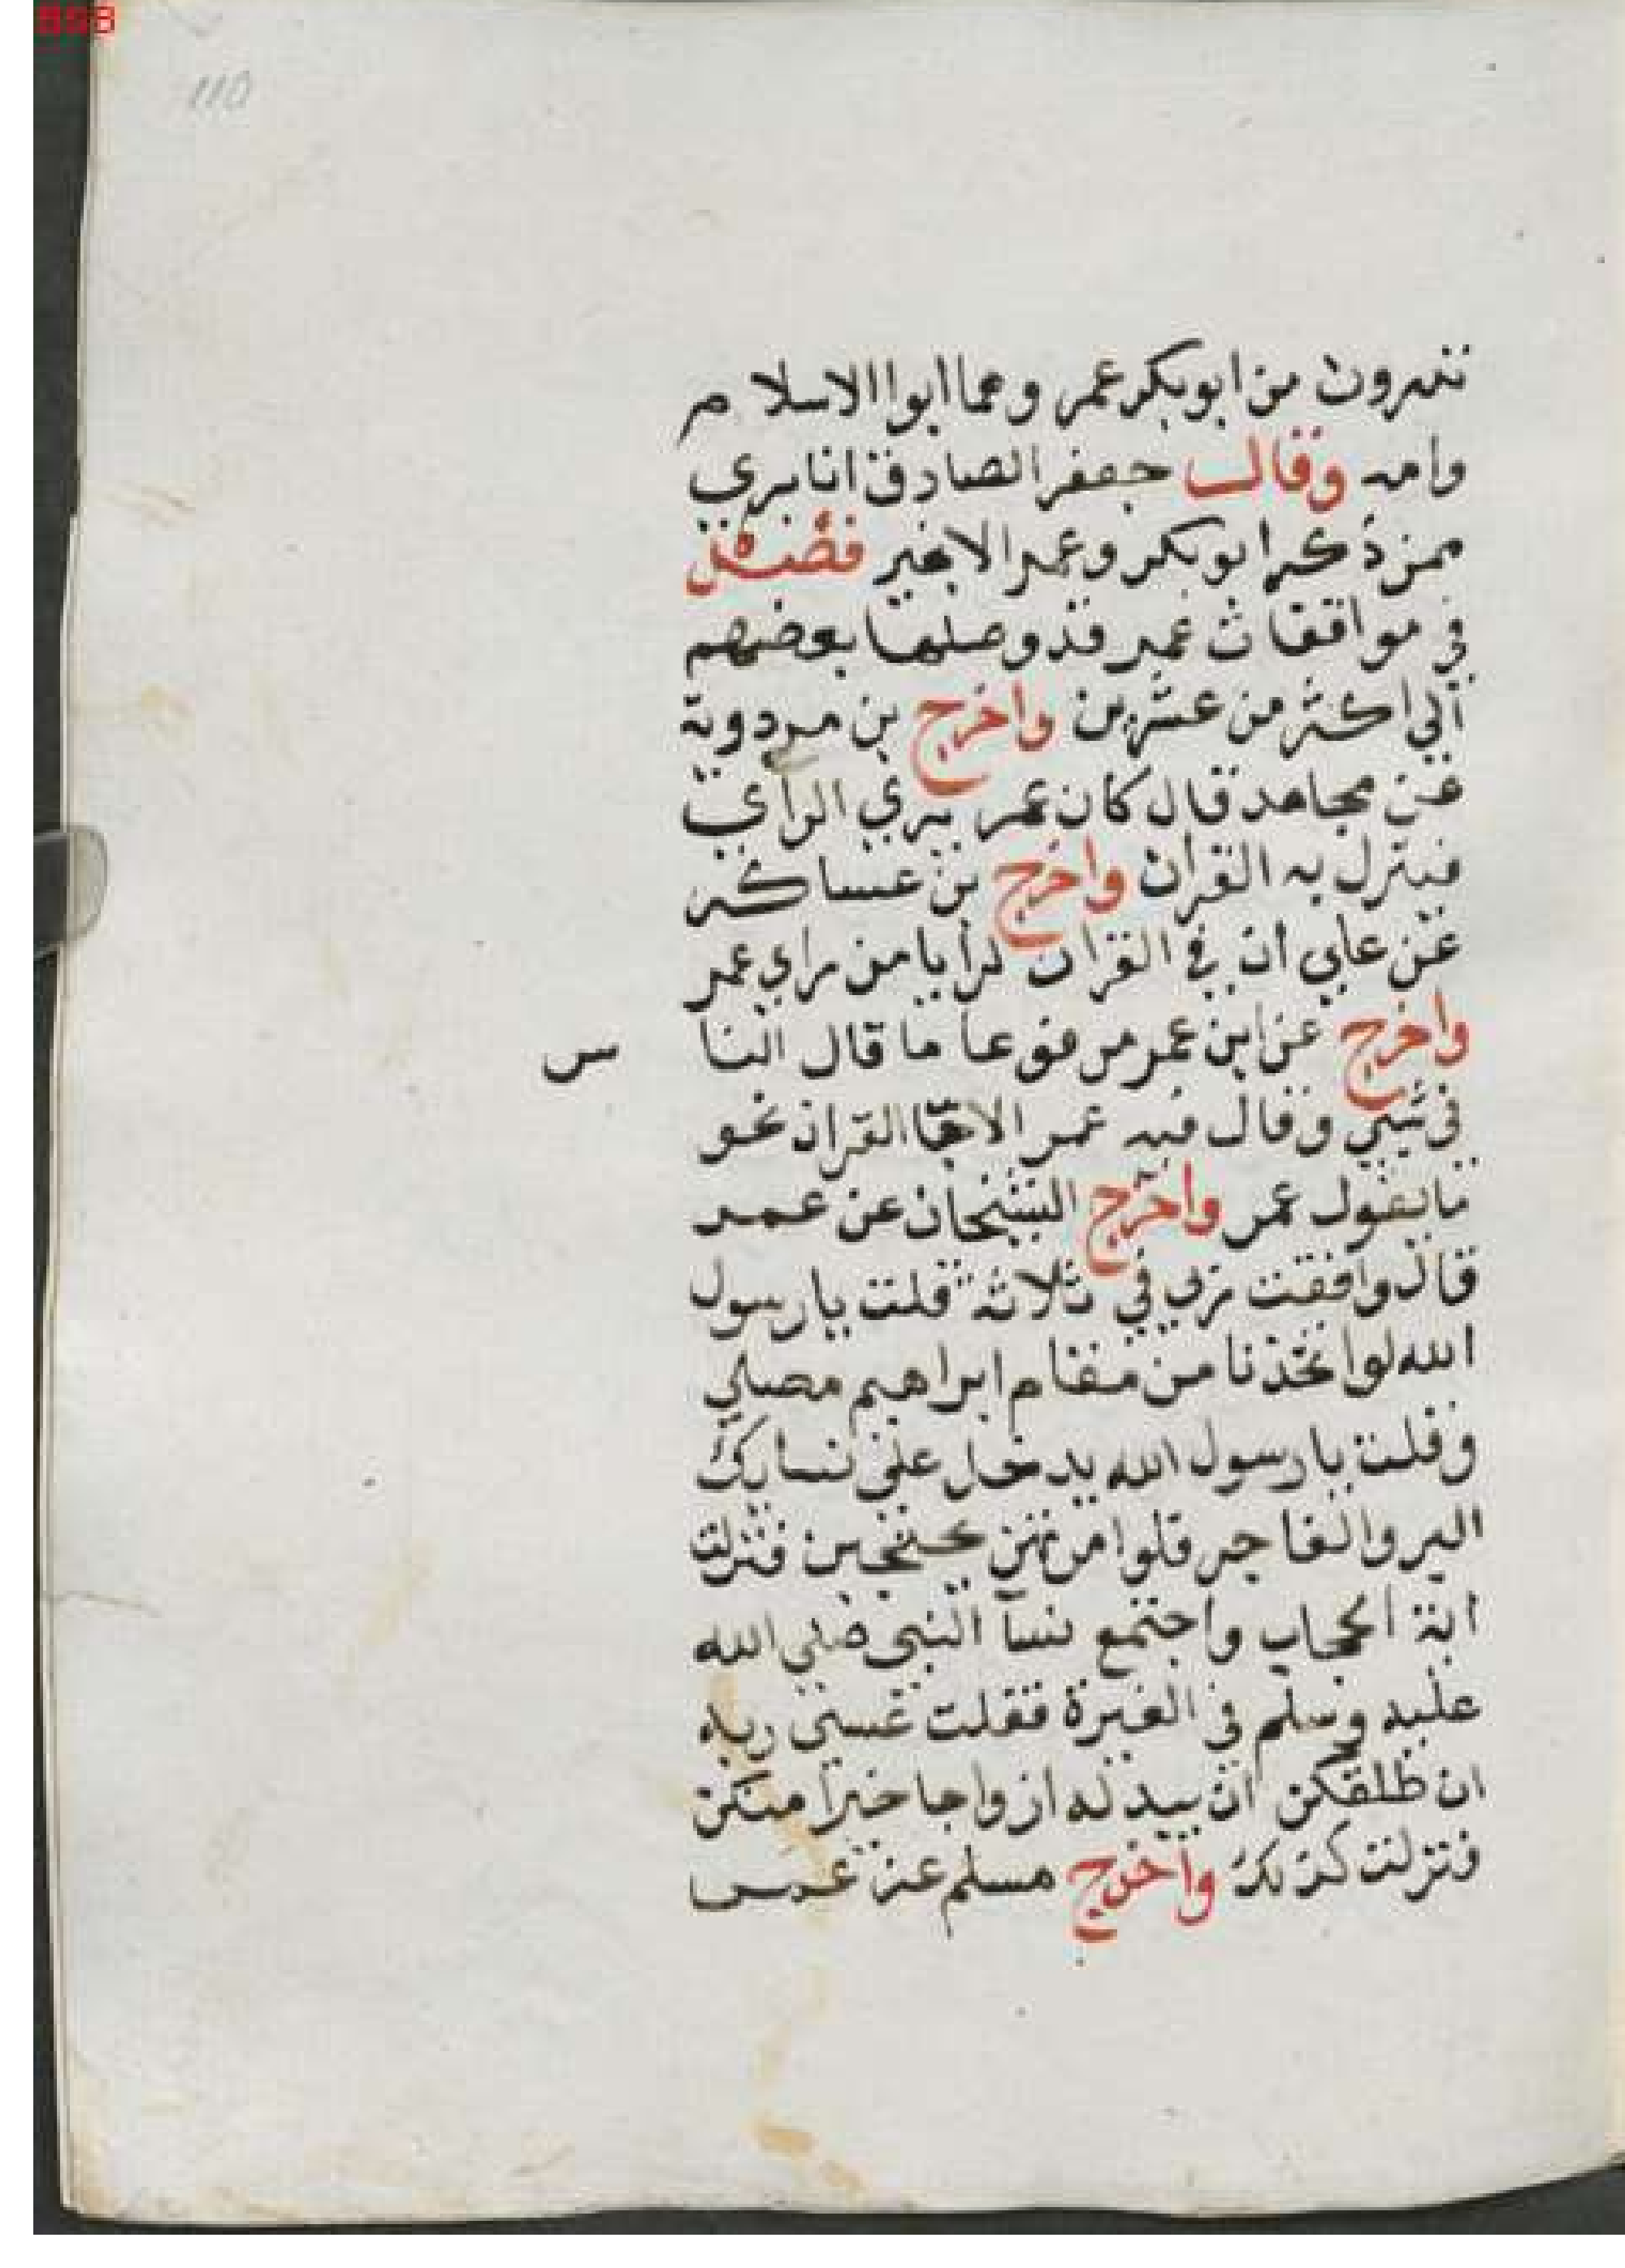 110
تدرون من ابوبكر عمر وهما ابوا الاسلام
وامه وقال جعفر الصادق انا بري
ممن ذكر ابوبكر وعمر الا بخير فصل
في موافقات عمر قد وصلها بعضهم
الي اكثر من عشرين واخرج بن مردوية
عن مجاهد قال كان عمر يري الرأي
فينزل به القران واخرج بن عساكر
عن علي ان في القران لرأيا من راي عمر
واخرج عن ابن عمر مرفوعا ما قال النا س
في شيي وقال فيه عمر الا جا القران نحو
ما يقول عمر واخرج الشيخان عن عمر
قال وافقت ربي في ثلاثة قلت يا رسول
الله لو اتخذنا من مقام ابراهيم مصلي
وقلت يا رسول الله يدخل علي نسايك
البر والفاجر فلوا امرتهن يحتجبن فنزلت
اية الحجاب واجتمع نسآ النبي صلي الله
عليه وسلم في الغيرة فقلت عسي ربه
ان طلقكن ان يبدله ازواجا خيرا منكن
فنزلت كذلك واخرج مسلم عن عمر